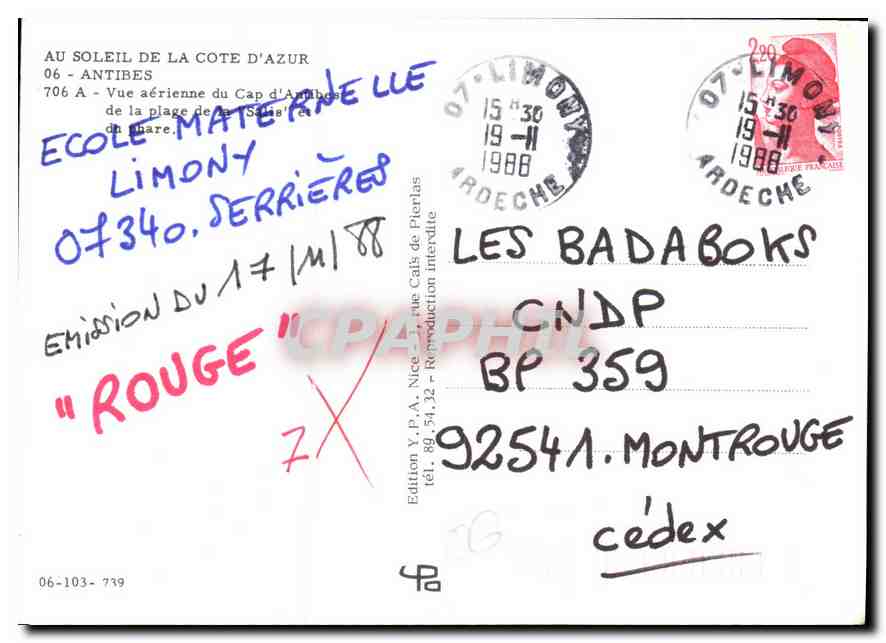 AU SOLEIL DE LA COTE D'AZUR
06 - ANTIBES
706 A - Vue aérienne du Cap d'Antibes
de la plage de la "Salis" et
du phare.
ECOLE MATERNELLE
LIMONY
07340. SERRIÈRES
EMISSION DU 17/11/88
"ROUGE"
7X
06-103- 739
Edition Y.P.A. Nice - 1, rue Caïs de Pierlas
tél. 89.54.32 - Reproduction interdite
CPAPHIL
07-LIMONY
15 H 30
19-11
1988
ARDECHE
07-LIMONY
15 H 30
19-11
1988
ARDECHE
2,20
LES BADABOKS
CNDP
BP 359
92541. MONTROUGE
cédex